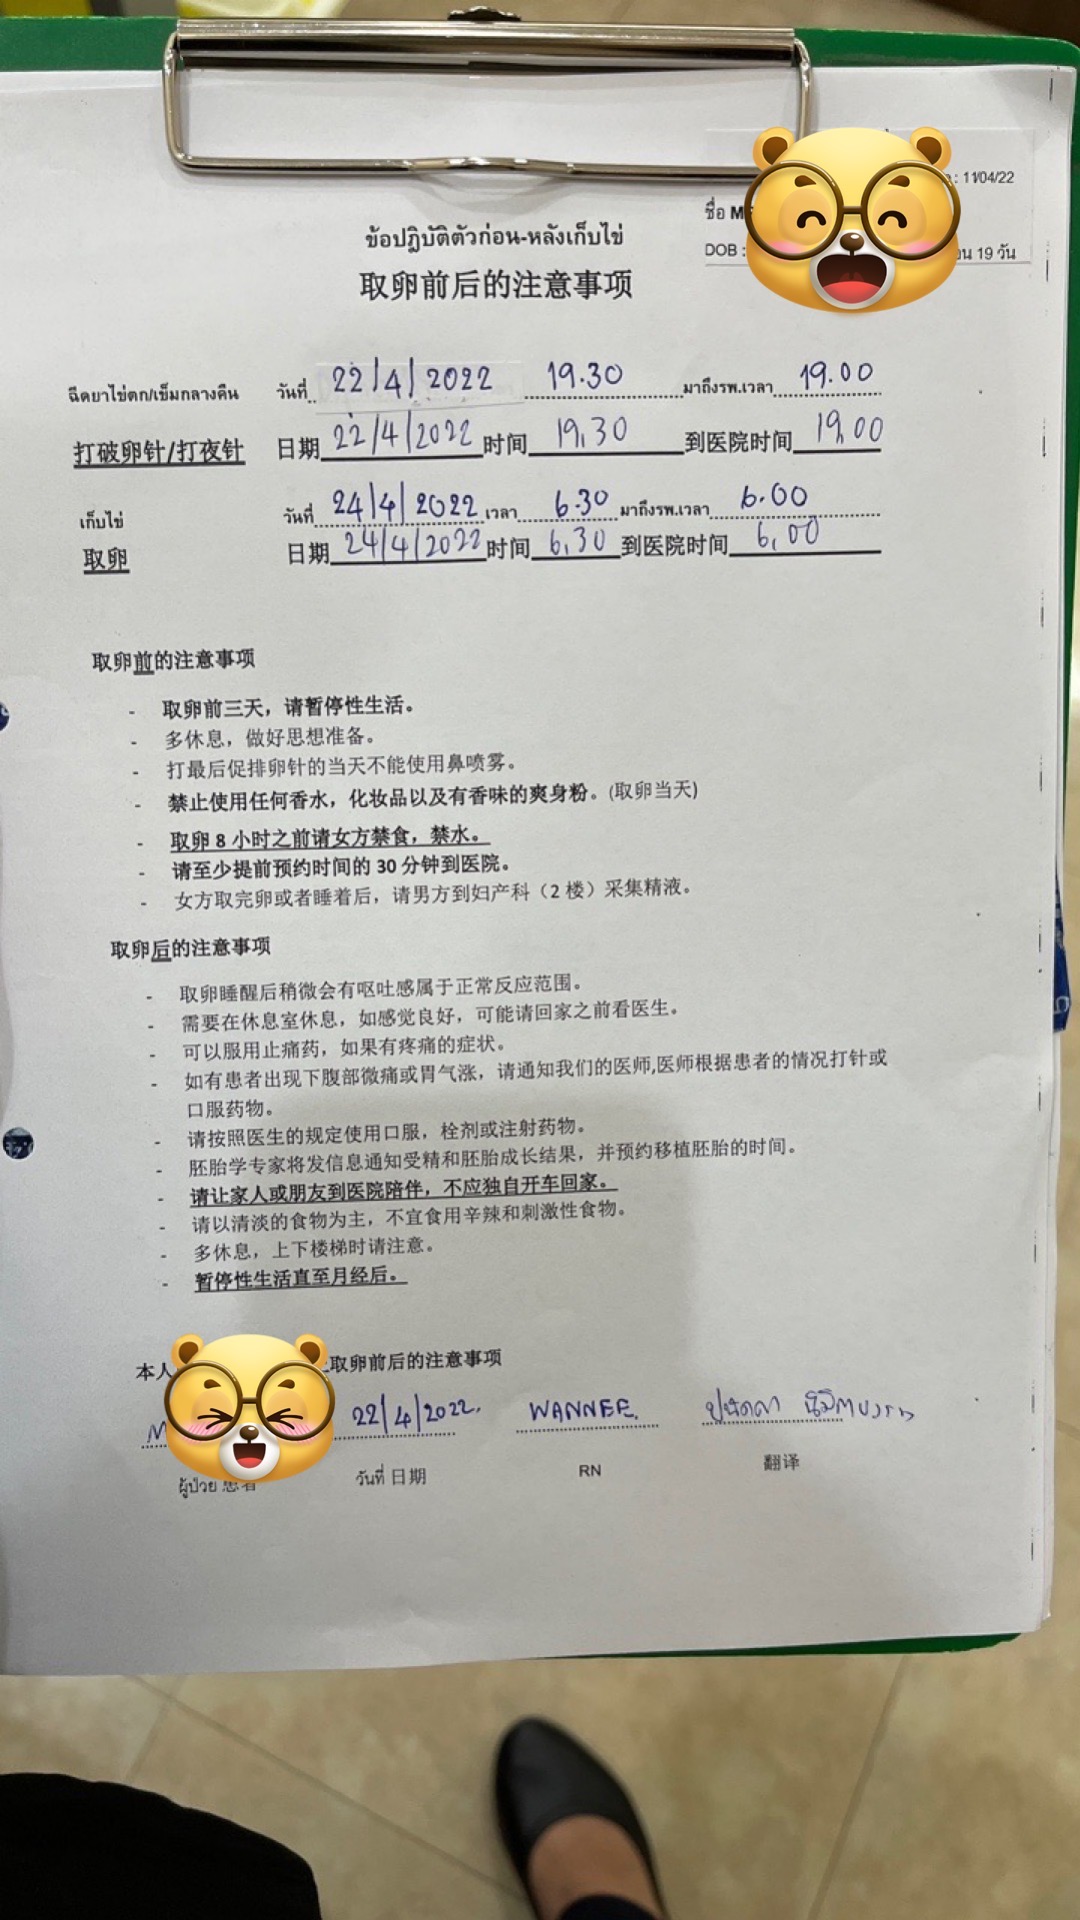 : 11/04/22
ชื่อ M
DOB :
น 19 วัน
ข้อปฏิบัติตัวก่อน-หลังเก็บไข่
取卵前后的注意事项
ฉีดยาไข่ตก/เข็มกลางคืน วันที่ 22/4/2022 19.30 มาถึงรพ.เวลา 19.00
打破卵针/打夜针 日期 22/4/2022 时间 19,30 到医院时间 19,00
เก็บไข่ วันที่ 24/4/2022 เวลา 6.30 มาถึงรพ.เวลา 6.00
取卵 日期 24/4/2022 时间 6,30 到医院时间 6,00
取卵前的注意事项
- 取卵前三天，请暂停性生活。
- 多休息，做好思想准备。
- 打最后促排卵针的当天不能使用鼻喷雾。
- 禁止使用任何香水，化妆品以及有香味的爽身粉。(取卵当天)
- 取卵 8 小时之前请女方禁食，禁水。
- 请至少提前预约时间的 30 分钟到医院。
- 女方取完卵或者睡着后，请男方到妇产科（2 楼）采集精液。
取卵后的注意事项
- 取卵睡醒后稍微会有呕吐感属于正常反应范围。
- 需要在休息室休息，如感觉良好，可能请回家之前看医生。
- 可以服用止痛药，如果有疼痛的症状。
- 如有患者出现下腹部微痛或胃气涨，请通知我们的医师,医师根据患者的情况打针或
口服药物。
- 请按照医生的规定使用口服，栓剂或注射药物。
- 胚胎学专家将发信息通知受精和胚胎成长结果，并预约移植胚胎的时间。
- 请让家人或朋友到医院陪伴，不应独自开车回家。
- 请以清淡的食物为主，不宜食用辛辣和刺激性食物。
- 多休息，上下楼梯时请注意。
- 暂停性生活直至月经后。
本人 取卵前后的注意事项
M 22/4/2022. WANNEE.
ผู้ป่วย 患者 วันที่ 日期 RN 翻译